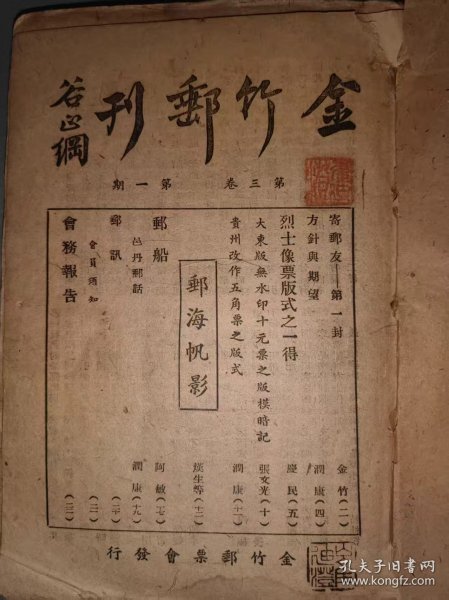 金竹郵刊
谷正綱
第三卷 第一期
寄郵友——第一封 金竹(二)
方針與期望 潤康(四)
烈士像票版式之一得 慶民(五)
大東版無水印十元票之版模暗記 張文光(十)
貴州改作五角票之版式 潤康(十一)
郵海帆影 漢生等(十二)
郵船 阿敏(十七)
邑丹郵話 潤康(十九)
郵訊 (二十)
會員須知 (二一)
會務報告 (二二)
金竹郵票會發行
孔夫子旧书网